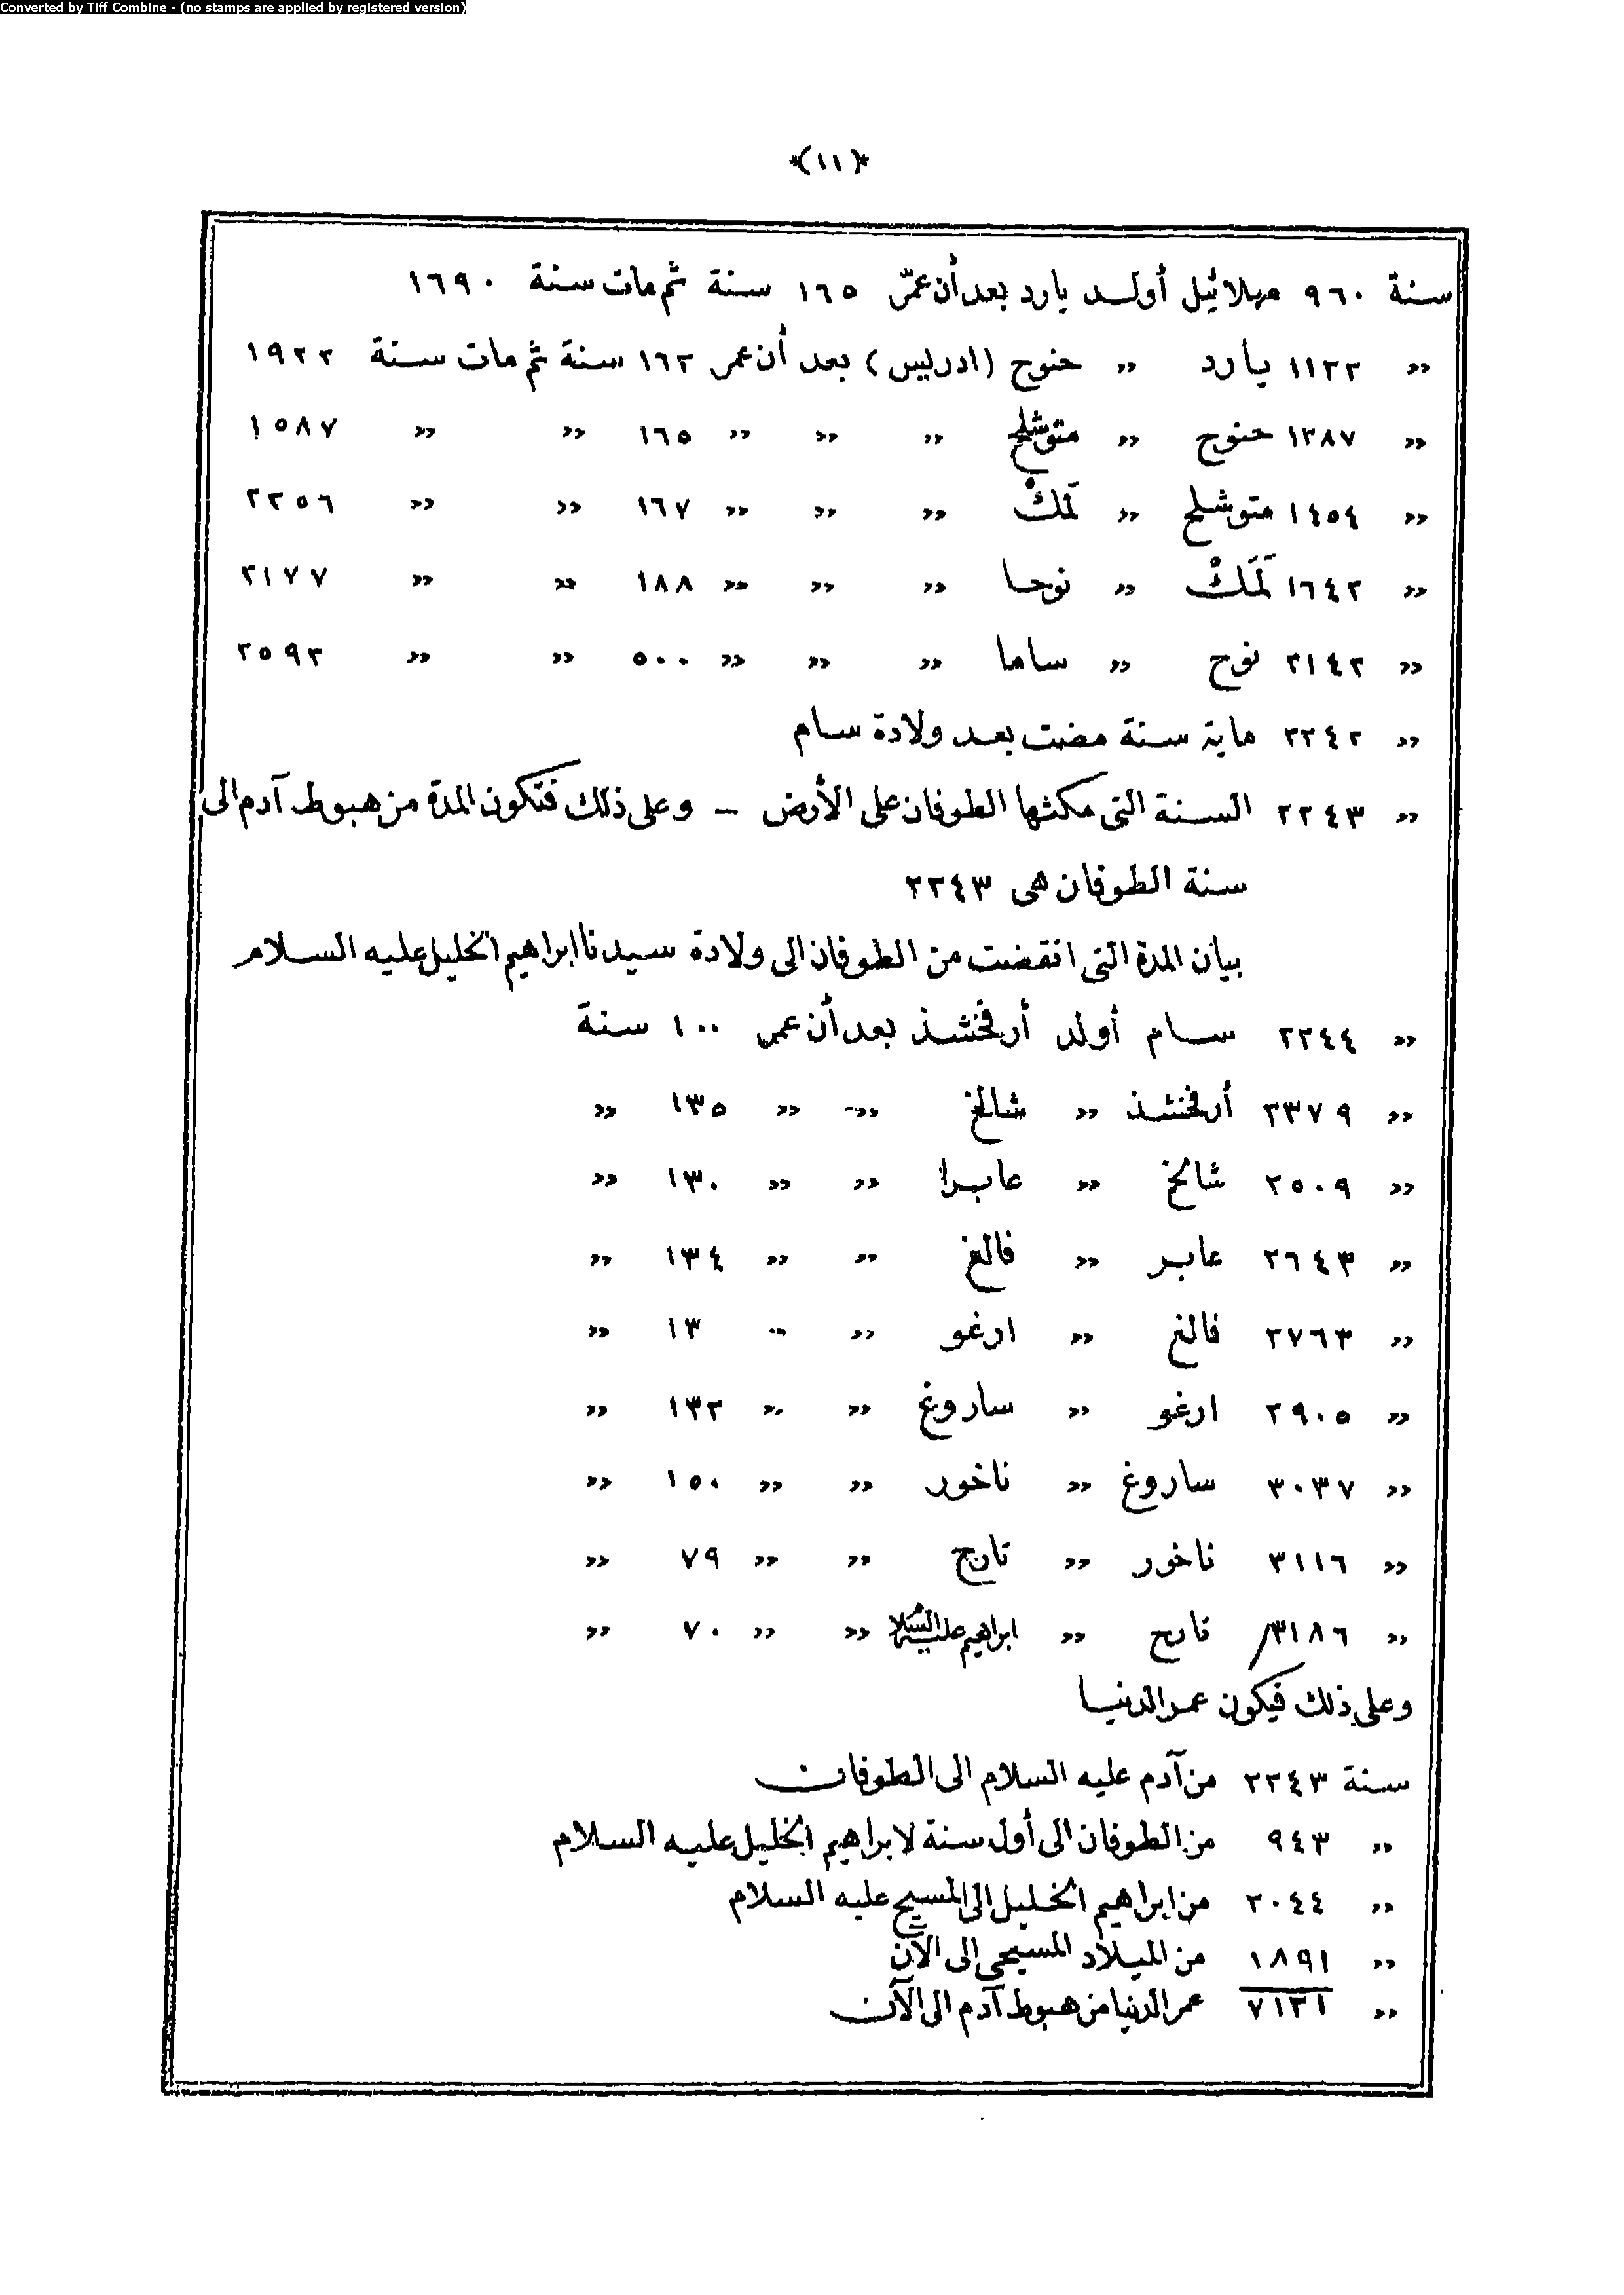 Converted by Tiff Combine - (no stamps are applied by registered version)
*(١١)*
سنة ٩٦٠ مهلائيل أولد يارد بعد أن عمّر ١٦٥ سنة ثم مات سنة ١٦٩٠
» ١١٢٢ يارد » حنوح (ادريس) بعد أن عمر ١٦٢ سنة ثم مات سنة ١٩٢٢
» ١٢٨٧ حنوح » متوشلح » » » ١٦٥ » » ١٥٨٧
» ١٤٥٤ متوشلح » لمكْ » » » ١٦٧ » » ٢٢٥٦
» ١٦٤٢ لَمَكْ » نوحا » » » ١٨٨ » » ٢١٧٧
» ٢١٤٢ نوح » ساما » » » ٥٠٠ » » ٢٥٩٢
» ٢٢٤٢ ماية سنة مضت بعد ولادة سام
» ٢٢٤٣ السنة التى مكثها الطوفان على الأرض – وعلى ذلك فتكون المدة من هبوط آدم الى
سنة الطوفان هى ٢٢٤٣
بيان المدة التى انقضت من الطوفان الى ولادة سيدنا ابراهيم الخليل عليه السلام
» ٢٢٤٤ سام أولد أرفخشذ بعد أن عمر ١٠٠ سنة
» ٢٣٧٩ أرفخشذ » شالخ » » ١٣٥ »
» ٢٥٠٩ شالخ » عابرا » » ١٣٠ »
» ٢٦٤٣ عابر » فالغ » » ١٣٤ »
» ٢٧٦٣ فالغ » ارغو » » ١٣ »
» ٢٩٠٥ ارغو » ساروغ » » ١٣٢ »
» ٣٠٣٧ ساروغ » ناخور » » ١٥٠ »
» ٣١١٦ ناخور » تارح » » ٧٩ »
» ٣١٨٦ تارح » ابراهيم عليه السلام » » ٧٠ »
وعلى ذلك فيكون عمر الدنيا
سنة ٢٢٤٣ من آدم عليه السلام الى الطوفان
» ٩٤٣ من الطوفان الى أول سنة لابراهيم الخليل عليه السلام
» ٢٠٤٤ من ابراهيم الخليل الى المسيح عليه السلام
» ١٨٩١ من الميلاد المسيحى الى الآن
» ٧١٢١ عمر الدنيا من هبوط آدم الى الآن